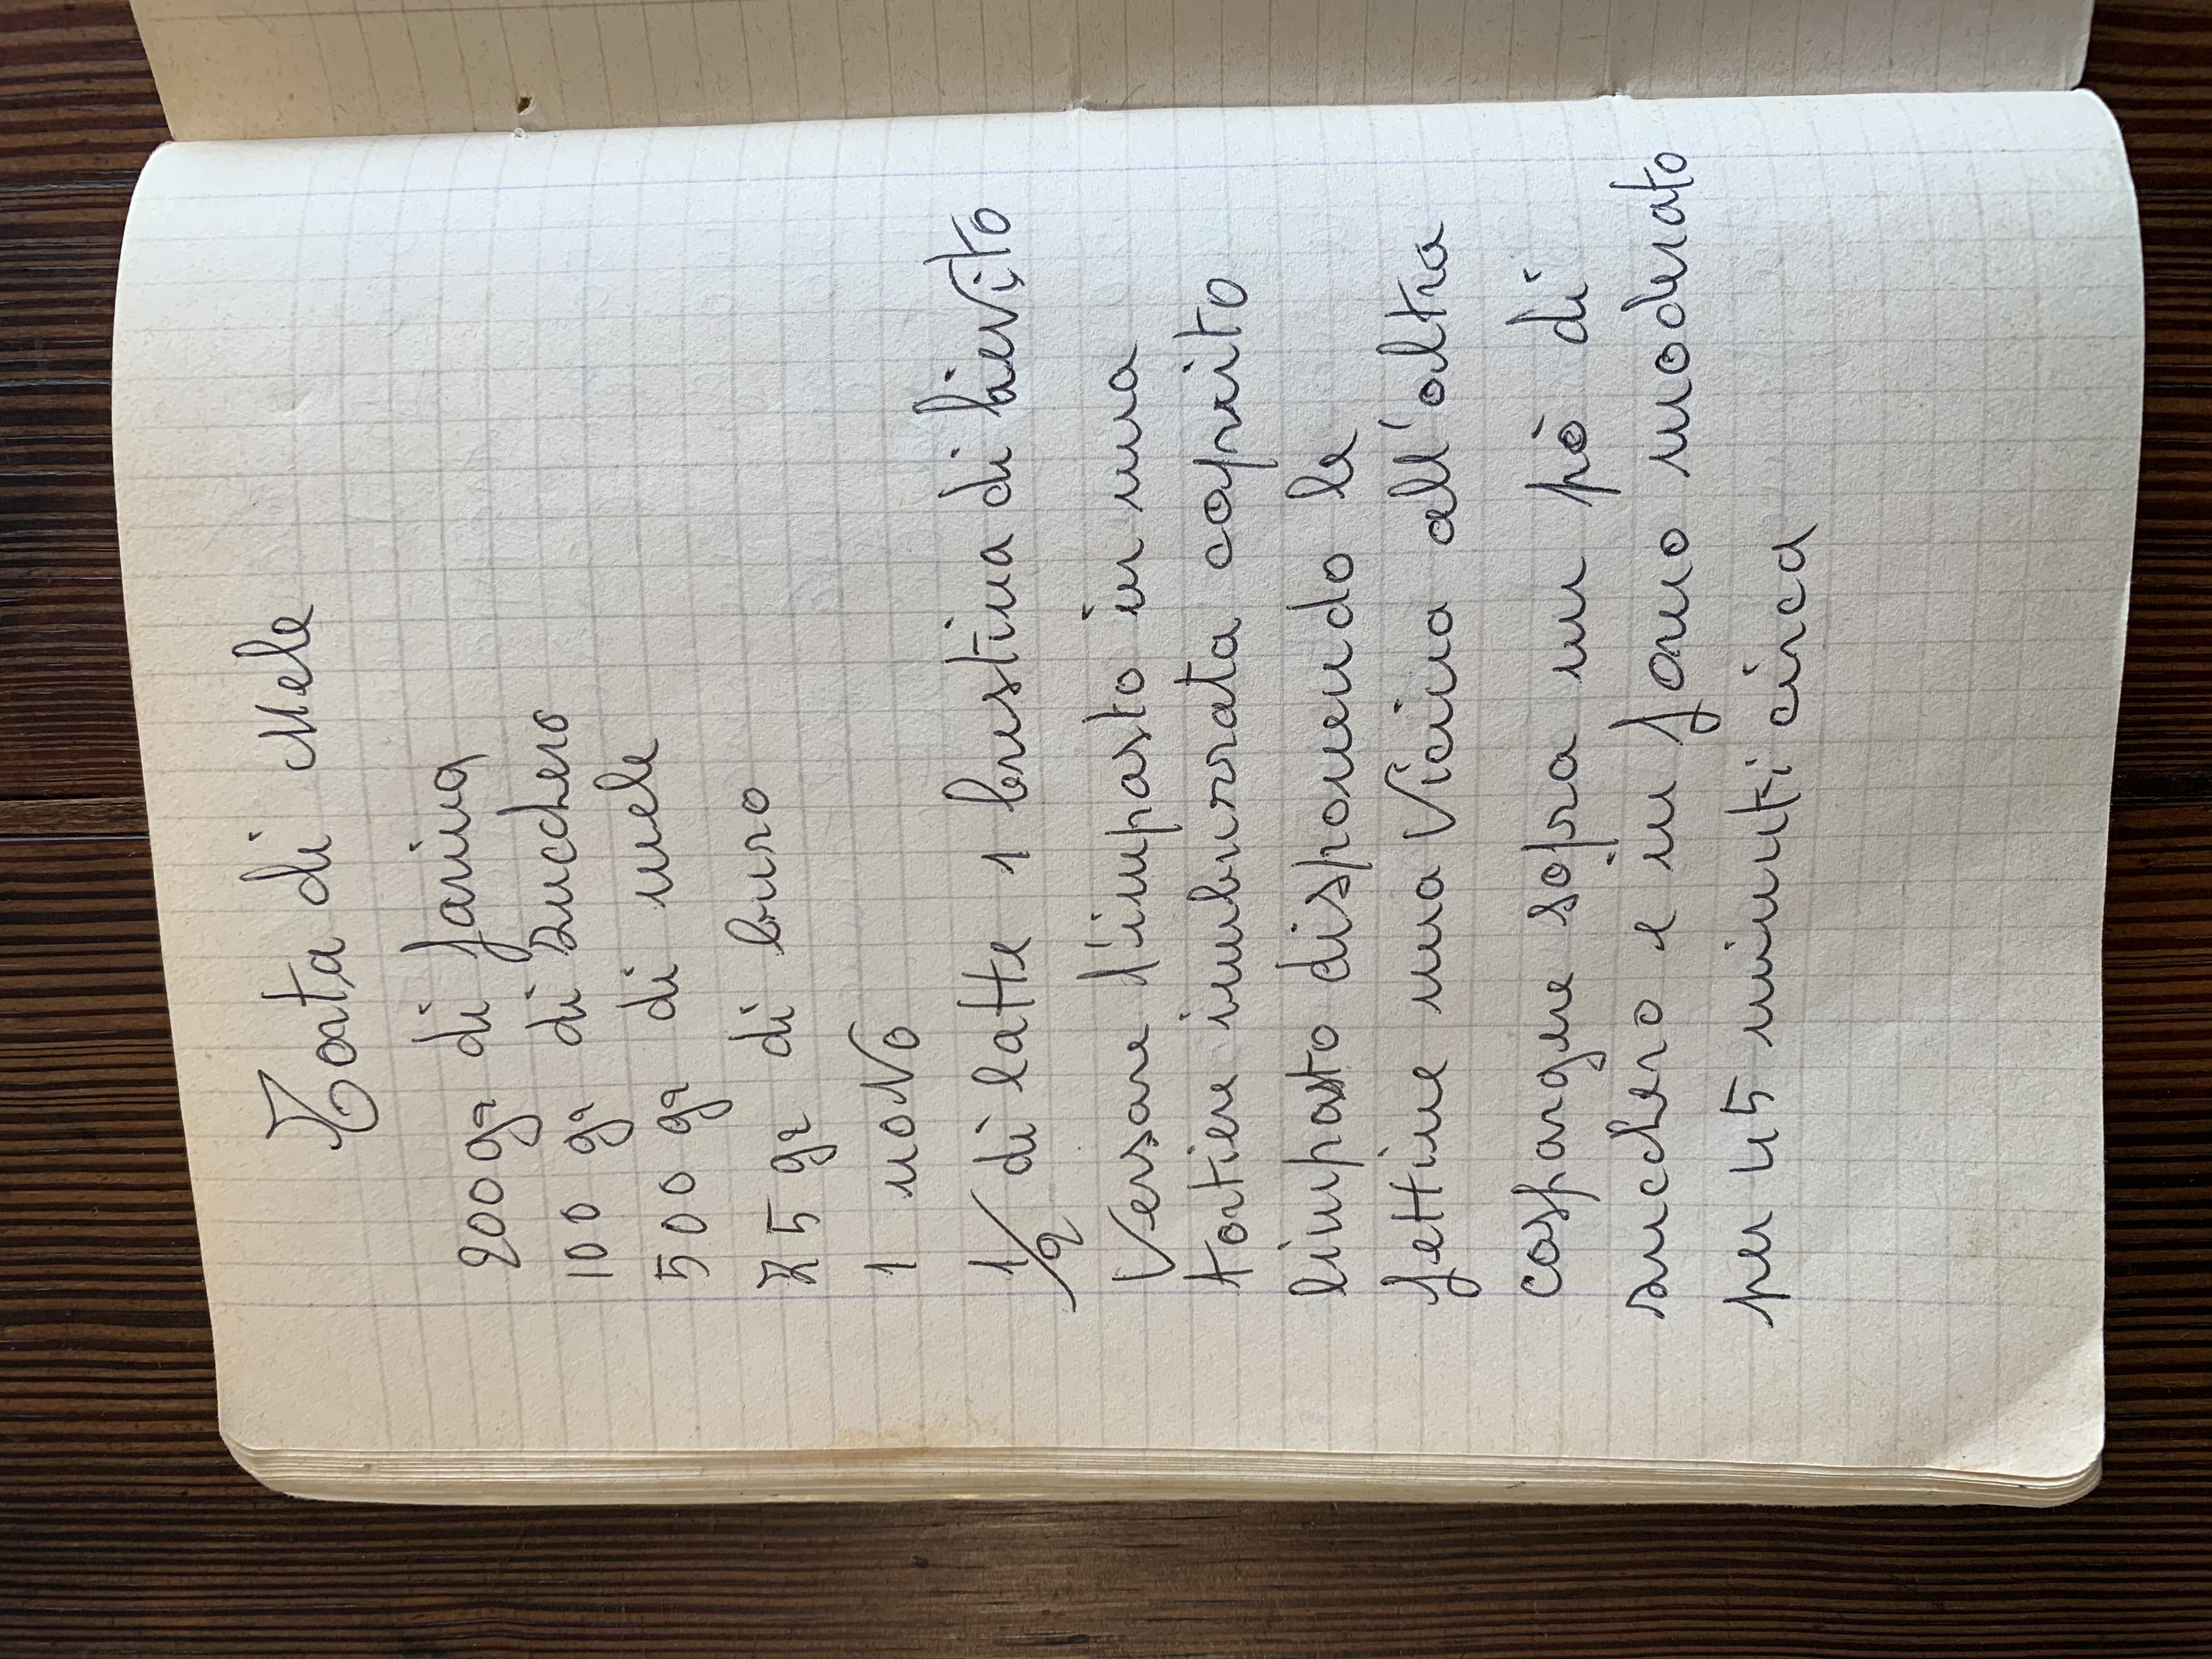 Torta di Mele
200 gr di farina
100 gr di zucchero
500 gr di mele
75 gr di buro
1 uovo
1/2 di latte 1 bustina di lievito
Versare l'impasto in una
tortiere imburrata coprito
limpasto disponendo le
fettine una vicina all'altra
cospargere sopra un pò di
zucchero e in forno moderato
per 45 minuti circa